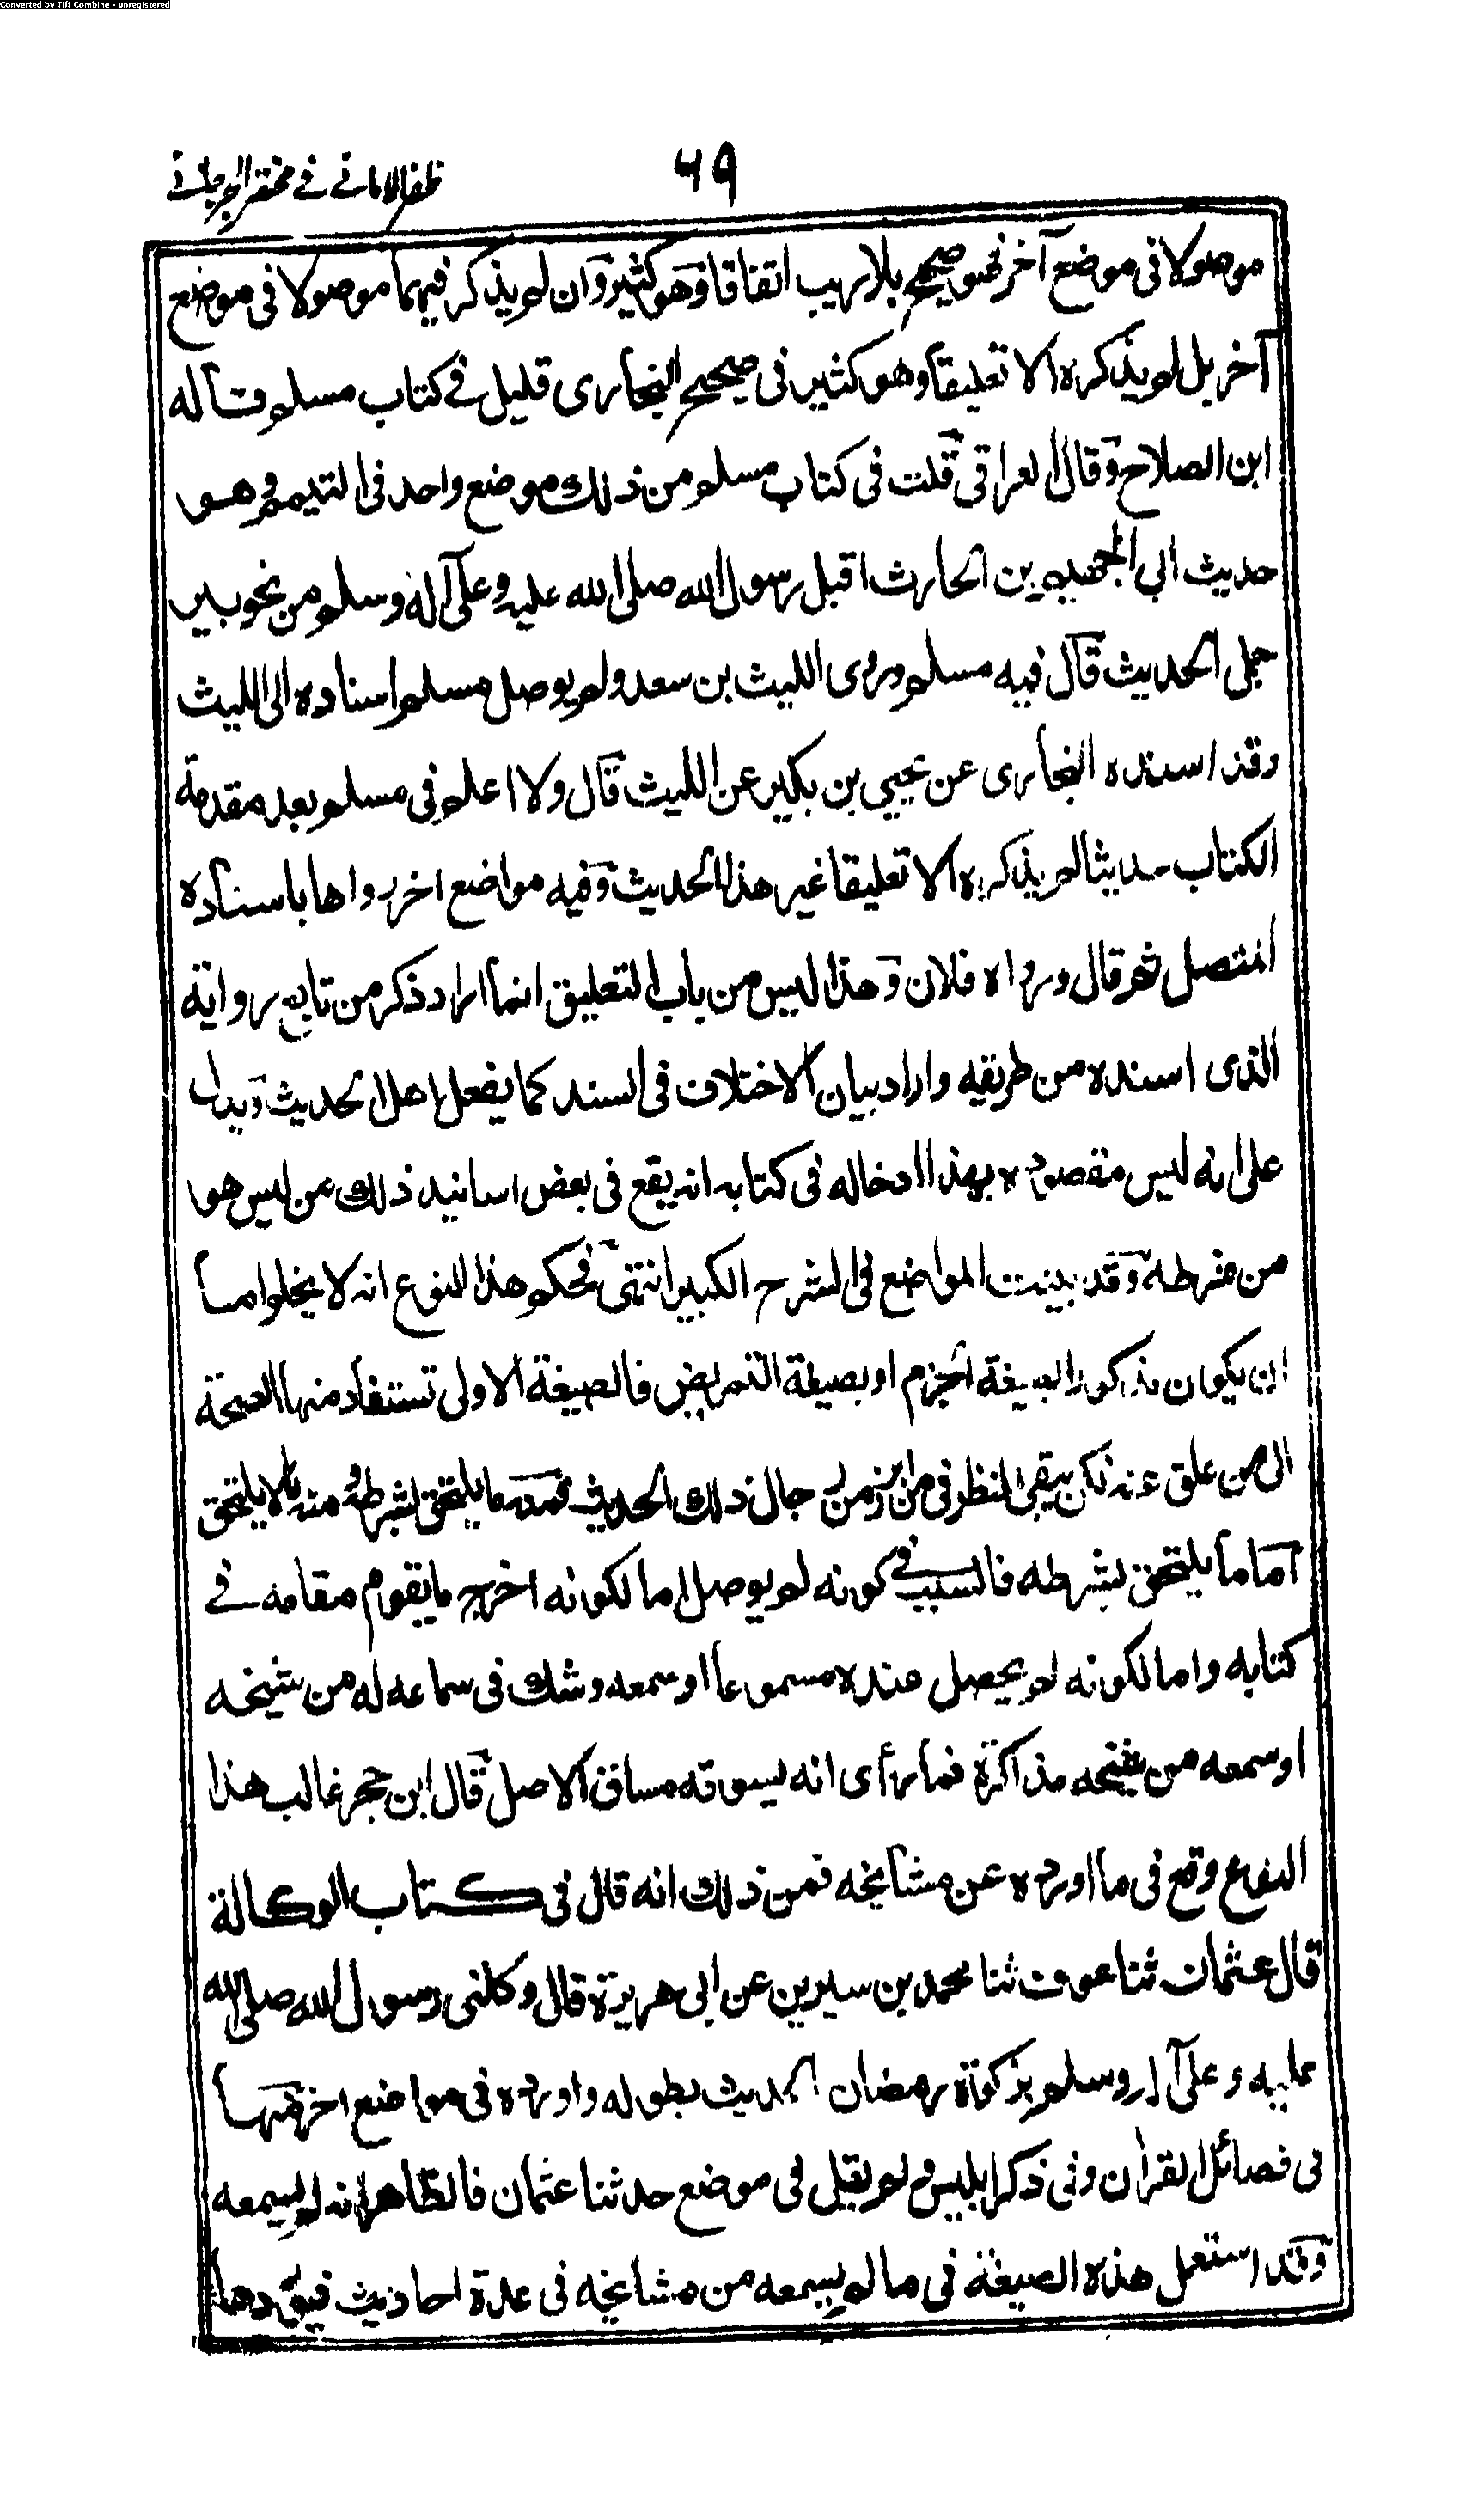 Converted by Tiff Combine - unregistered
٦٩
ظفر الاماني في مختصر الجرجاني
موصولا في موضع آخر فهو صحيح بلا ريب اتفاقا وهو كثير وان لم يذكر فيهما موصولا في موضع
آخر بل لم يذكره الا تعليقا وهو كثير في صحيح البخاري قليل في كتاب مسلم قاله
ابن الصلاح وقال العراقي قلت في كتاب مسلم من ذلك موضع واحد في التيمم وهو
حديث ابي الجهيم بن الحارث اقبل رسول الله صلى الله عليه وعلى آله وسلم من نحو بير
جمل الحديث قال فيه مسلم وروى الليث بن سعد ولم يوصل مسلم اسناده الى الليث
وقد اسنده البخاري عن يحيى بن بكير عن الليث قال ولا اعلم في مسلم بعد مقدمة
الكتاب حديثا لم يذكره الا تعليقا غير هذا الحديث وفيه مواضع اخر رواها باسناده
المتصل ثم قال ورواه فلان وهذا ليس من باب التعليق انما اراد ذكر من تابع رواية
الذي اسنده من طريقه واراد بيان الاختلاف في السند كما يفعل اهل الحديث ويدل
على انه ليس مقصوده بهذا ادخاله في كتابه انه يقع في بعض اسانيد ذلك من ليس هو
من شرطه وقد بينت المواضع في الشرح الكبير انتهى فحكم هذا النوع انه لا يخلو اما
ان يكون مذكورا بصيغة الجزم او بصيغة التمريض فالصيغة الاولى تستفاد منها الصحة
الى من علق عنه لكن يبقى النظر في من ابرز من رجال ذلك الحديث فمنه ما يلتحق بشرطه ومنه ما لا يلتحق
اما ما يلتحق بشرطه فالسبب في كونه لم يوصل اما لكونه اخرج ما يقوم مقامه في
كتابه واما لكونه لم يحصل عنده مسموعا او سمعه وشك في سماعه له من شيخه
او سمعه من شيخه مذاكرة فما رأى انه يسوقه مساق الاصل قال ابن حجر غالب هذا
النوع وقع في ما اورده عن مشائخه فمن ذلك انه قال في كتاب الوكالة
قال عثمان ثنا عوف ثنا محمد بن سيرين عن ابي هريرة قال وكلني رسول الله صلى الله
عليه وعلى آله وسلم بزكوة رمضان الحديث بطوله واورده في مواضع اخر منها
في فضائل القرآن وفي ذكر ابليس ولم يقل في موضع حدثنا عثمان فالظاهر انه لم يسمعه
وقد استعمل هذه الصيغة في ما لم يسمعه من مشائخه في عدة احاديث فيوردها